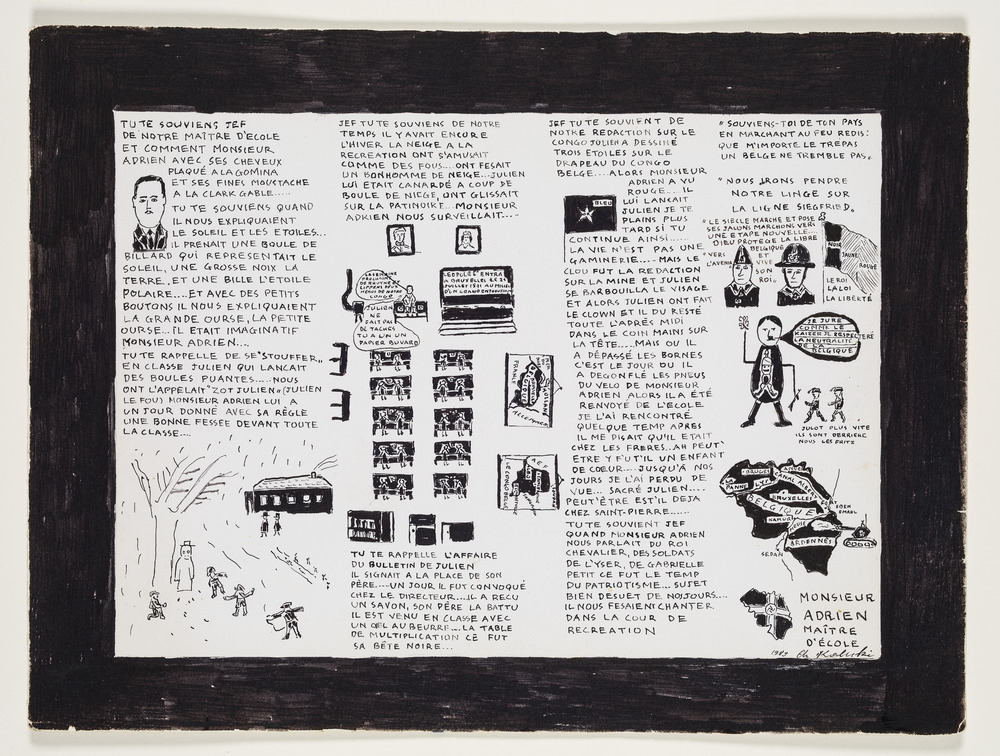 TU TE SOUVIENS JEF
DE NOTRE MAÎTRE D'ECOLE
ET COMMENT MONSIEUR
ADRIEN AVEC SES CHEVEUX
PLAQUÉ A LA GOMINA
ET SES FINES MOUSTACHE
A LA CLARK GABLE.....
TU TE SOUVIENS QUAND
IL NOUS EXPLIQUAIENT
LE SOLEIL ET LES ETOILES...
IL PRENAIT UNE BOULE DE
BILLARD QUI REPRESENTAIT LE
SOLEIL, UNE GROSSE NOIX LA
TERRE, ET UNE BILLE L'ETOILE
POLAIRE....ET AVEC DES PETITS
BOUTONS IL NOUS EXPLIQUAIENT
LA GRANDE OURSE, LA PETITE
OURSE...IL ETAIT IMAGINATIF
MONSIEUR ADRIEN...
TU TE RAPPELLE DE SE "STOUFFER"
EN CLASSE JULIEN QUI LANCAIT
DES BOULES PUANTES.....NOUS
ONT L'APPELAIT "ZOT JULIEN" (JULIEN
LE FOU) MONSIEUR ADRIEN LUI A
UN JOUR DONNÉ AVEC SA RÈGLE
UNE BONNE FESSÉE DEVANT TOUTE
LA CLASSE....
JEF TU TE SOUVIENS DE NOTRE
TEMPS IL Y AVAIT ENCORE
L'HIVER LA NEIGE A LA
RECREATION ONT S'AMUSAIT
COMME DES FOUS....ONT FESAIT
UN BONHOMME DE NEIGE...JULIEN
LUI ÉTAIT CANARDÉ A COUP DE
BOULE DE NIEGE, ONT GLISSAIT
SUR LA PATINOIRE...MONSIEUR
ADRIEN NOUS SURVEILLAIT....
LA SEMAINE
PROCHAINE
LEOPOLD I ENTRA
A BRUXELLES LE 21
JUILLET 1831 AU MILIEU
JULIEN
NE
FAIT PAS
DE TACHES
TU A LIN UN
PAPIER BUVARD
ALLEMAGNE
A.E.F
TU TE RAPPELLE L'AFFAIRE
DU BULLETIN DE JULIEN
IL SIGNAIT A LA PLACE DE SON
PÈRE.....UN JOUR IL FUT CONVOQUÉ
CHEZ LE DIRECTEUR...IL A RECU
UN SAVON, SON PÈRE LA BATTU
IL EST VENU EN CLASSE AVEC
UN ŒIL AU BEURRE...LA TABLE
DE MULTIPLICATION CE FUT
SA BÊTE NOIRE...
JEF TU TE SOUVIENT DE
NOTRE REDACTION SUR LE
CONGO JULIEN A DESSINÉ
TROIS ETOILES SUR LE
DRAPEAU DU CONGO
BELGE....ALORS MONSIEUR
ADRIEN A VU
ROUGE... IL
LUI LANCAIT
JULIEN JE TE
PLAINS PLUS
TARD SI TU
BLEU
CONTINUE AINSI.....
LA VIE N'EST PAS UNE
GAMINERIE....MAIS LE
CLOU FUT LA REDACTION
SUR LA MINE ET JULIEN
SE BARBOUILLA LE VISAGE
ET ALORS JULIEN ONT FAIT
LE CLOWN ET IL DU RESTÉ
TOUTE L'APRÉS MIDI
DANS LE COIN MAINS SUR
LA TÊTE.....MAIS OU IL
A DÉPASSÉ LES BORNES
C'EST LE JOUR OU IL
A DEGONFLÉ LES PNEUS
DU VELO DE MONSIEUR
ADRIEN ALORS IL A ÉTÉ
RENVOYÉ DE L'ÉCOLE
JE L'AI RENCONTRÉ
QUELQUE TEMP APRES
IL ME DISAIT QU'IL ETAIT
CHEZ LES FRERES...AH PEUT
ETRE Y FUT'IL UN ENFANT
DE CŒUR....JUSQU'À NOS
JOURS JE L'AI PERDU DE
VUE... SACRÉ JULIEN....
PEUT'ÊTRE EST'IL DEJA
CHEZ SAINT-PIERRE......
TU TE SOUVIENT JEF
QUAND MONSIEUR ADRIEN
NOUS PARLAIT DU ROI
CHEVALIER, DES SOLDATS
DE L'YSER, DE GABRIELLE
PETIT CE FUT LE TEMP
DU PATRIOTISME... SUJET
BIEN DESUET DE NOJOURS...
IL NOUS FESAIENT CHANTER
DANS LA COUR DE
RECREATION
"SOUVIENS-TOI DE TON PAYS
EN MARCHANT AU FEU REDIS:
QUE M'IMPORTE LE TREPAS
UN BELGE NE TREMBLE PAS"
"NOUS IRONS PENDRE
NOTRE LINGE SUR
LA LIGNE SIEGFRIED.
"LE SIECLE MARCHE ET POSE
SES JALONS MARCHONS VERS
UNE ETAPE NOUVELLE...
DIEU PROTEGE LA LIBRE
BELGIQUE
VERS
L'AVENIR
ET
VIVE
SON
ROI"
NOIR
JAUNE
ROUGE
LE ROI
LA LOI
LA LIBERTÉ
JE JURE
COMME LE
KAISER JE RESPECTERÉ
LA NEUTRALITÉ
DE LA
BELGIQUE
JULOT PLUS VITE
ILS SONT DERRIERE
NOUS LES FRITZ
BRUGES
LA
PANNE
LYS
CANAL ALBERT
BRUXELLES
BELGIQUE
EBEN
EMAEL
NAMUR
MEUSE
ARDENNES
SEDAN
MONSIEUR
ADRIEN
MAÎTRE
D'ÉCOLE
1989